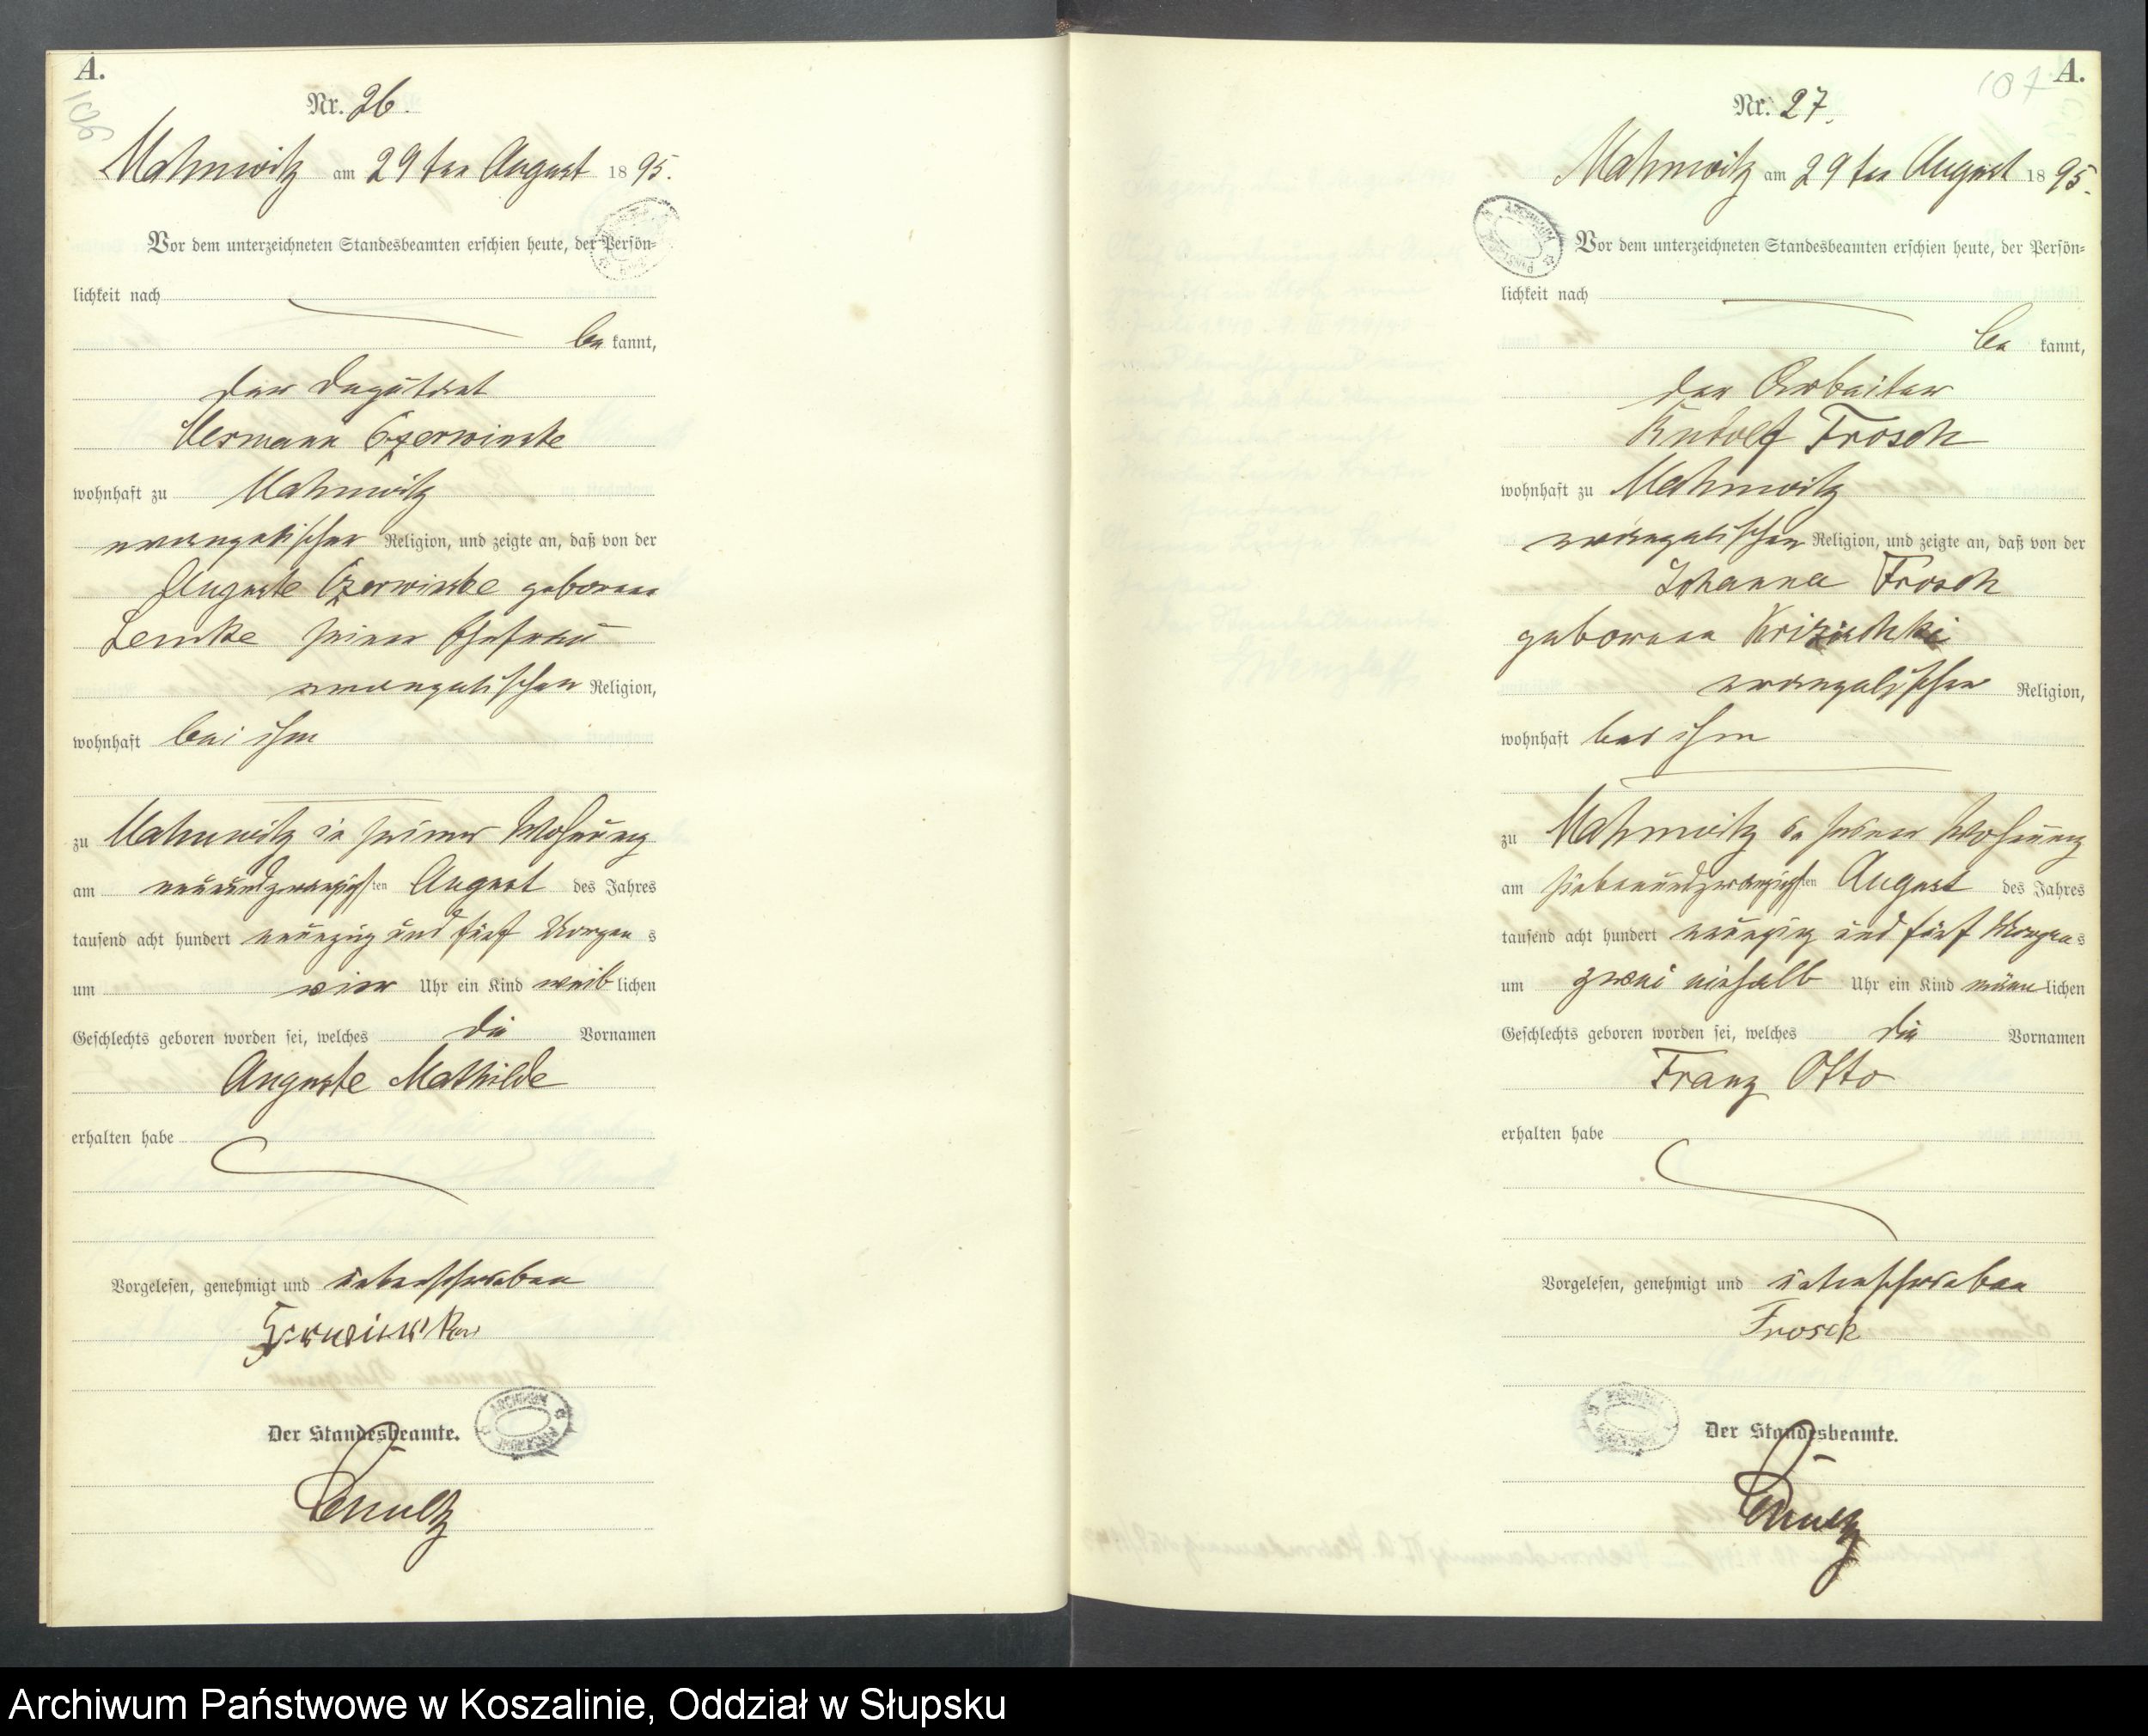 A.
106
Nr. 26.
Mahnwitz am 29ten August 1895.
Vor dem unterzeichneten Standesbeamten erschien heute, der Persön=
lichkeit nach
be kannt,
der Deputant
Hermann Czerwinske
wohnhaft zu Mahnwitz
evangelischer Religion, und zeigte an, daß von der
Auguste Czerwinske geborene
Lemke seiner Ehefrau
evangelischen Religion,
wohnhaft bei ihm
zu Mahnwitz in seiner Wohnung
am neunundzwanzigsten August des Jahres
tausend acht hundert neunzig und fünf Morgens
um vier Uhr ein Kind weiblichen
Geschlechts geboren worden sei, welches die Vornamen
Auguste Mathilde
erhalten habe
Vorgelesen, genehmigt und unterschrieben
Der Standesbeamte.
Schultz
107
A.
Nr. 27.
Mahnwitz am 29ten August 1895.
Vor dem unterzeichneten Standesbeamten erschien heute, der Persön=
lichkeit nach
be kannt,
der Arbeiter
Rudolf Frosch
wohnhaft zu Mahnwitz
evangelischer Religion, und zeigte an, daß von der
Johanna Frosch
geborene
evangelischer Religion,
wohnhaft bei ihm
zu Mahnwitz in seiner Wohnung
am siebenundzwanzigsten August des Jahres
tausend acht hundert neunzig und fünf Morgens
um zwei einhalb Uhr ein Kind männlichen
Geschlechts geboren worden sei, welches die Vornamen
Franz Otto
erhalten habe
Vorgelesen, genehmigt und unterschrieben
Frosch
Der Standesbeamte.
Schultz
Archiwum Państwowe w Koszalinie, Oddział w Słupsku